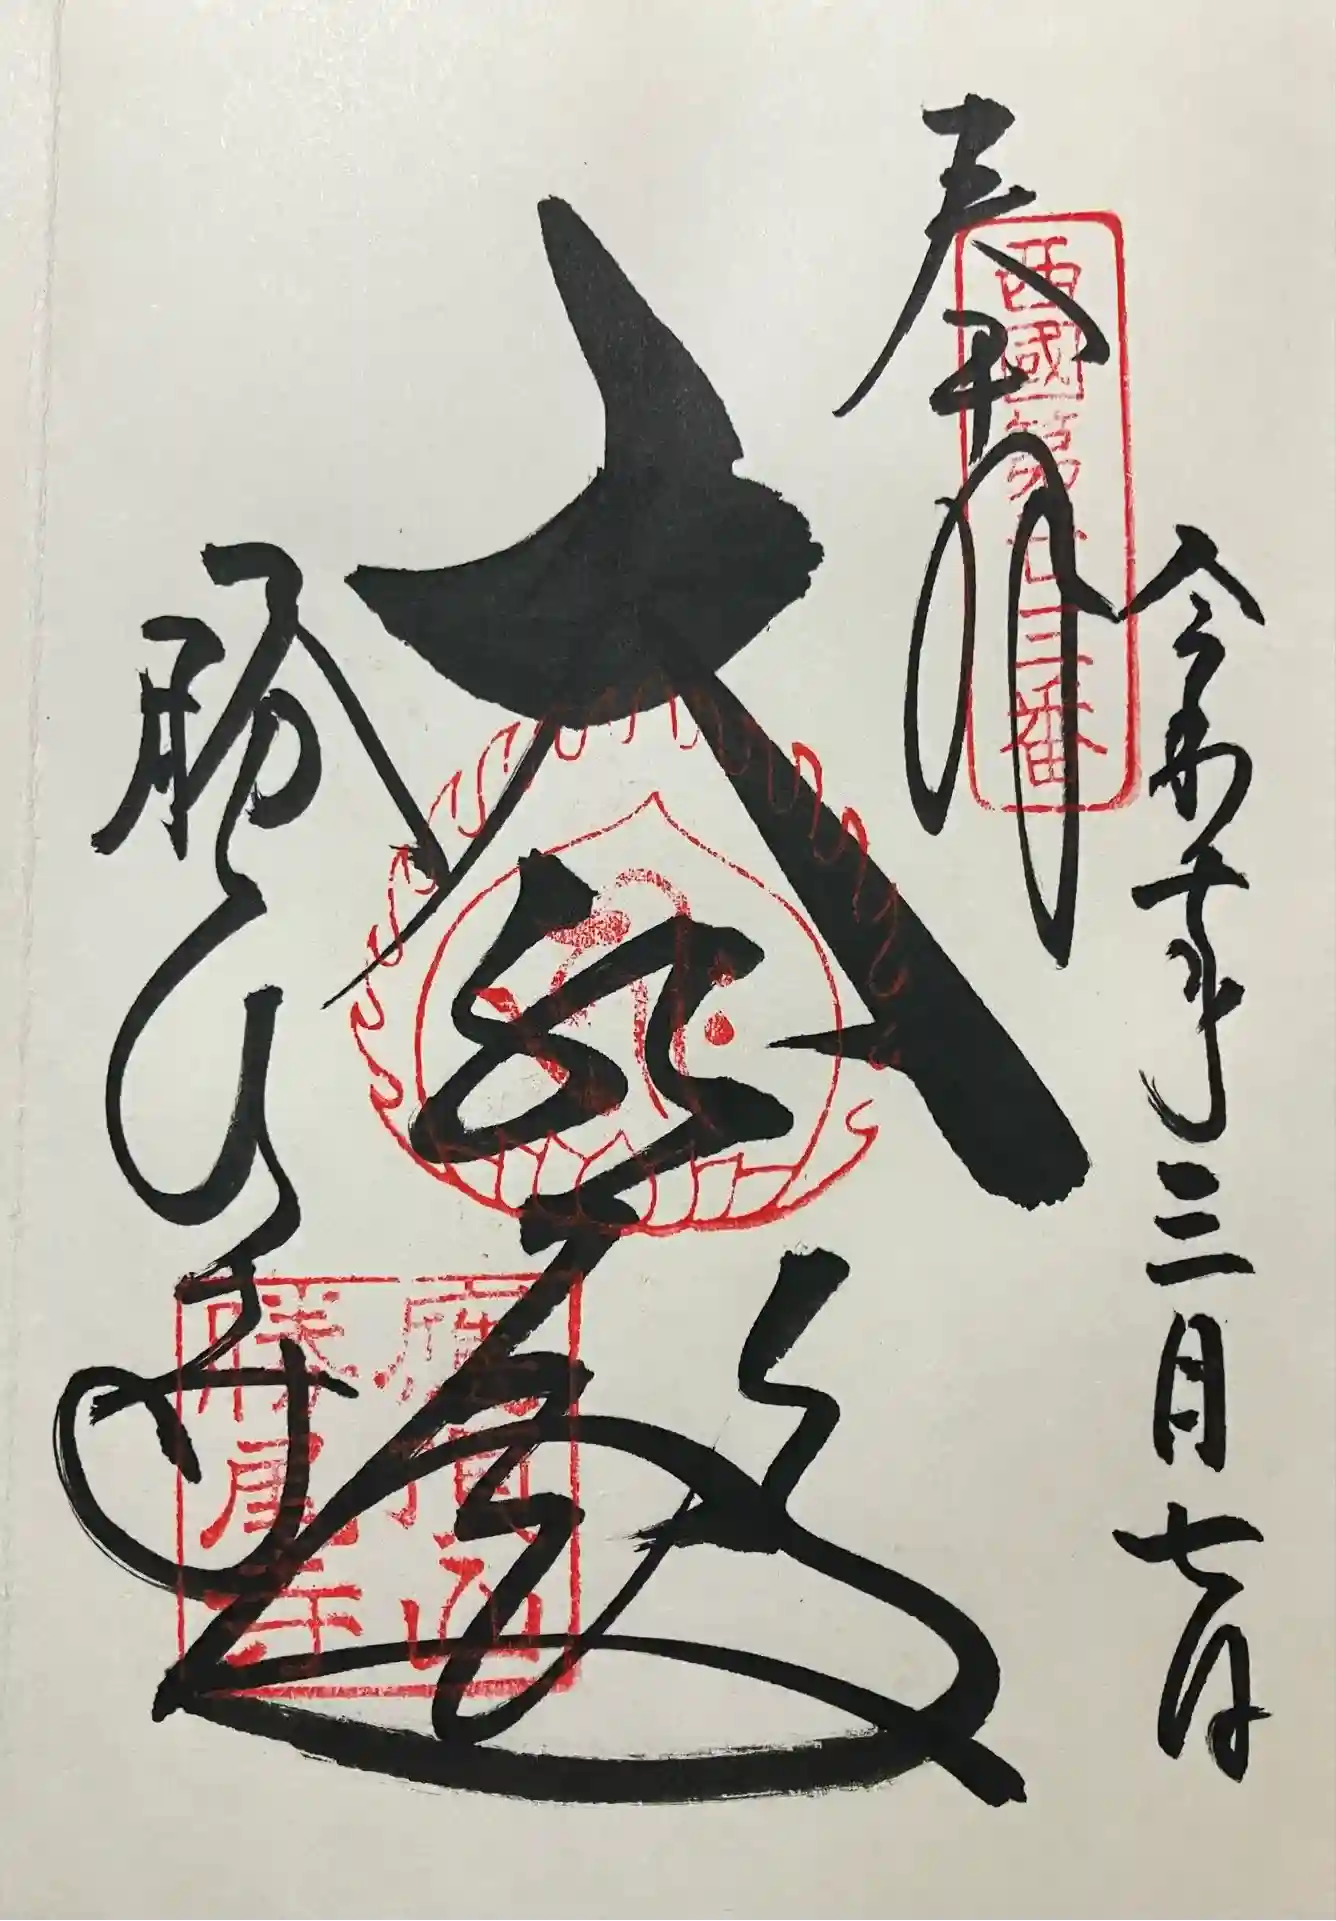 奉拝
西國第廿三番
令和年三月七日
大悲殿
勝尾寺
應頂山
勝尾寺